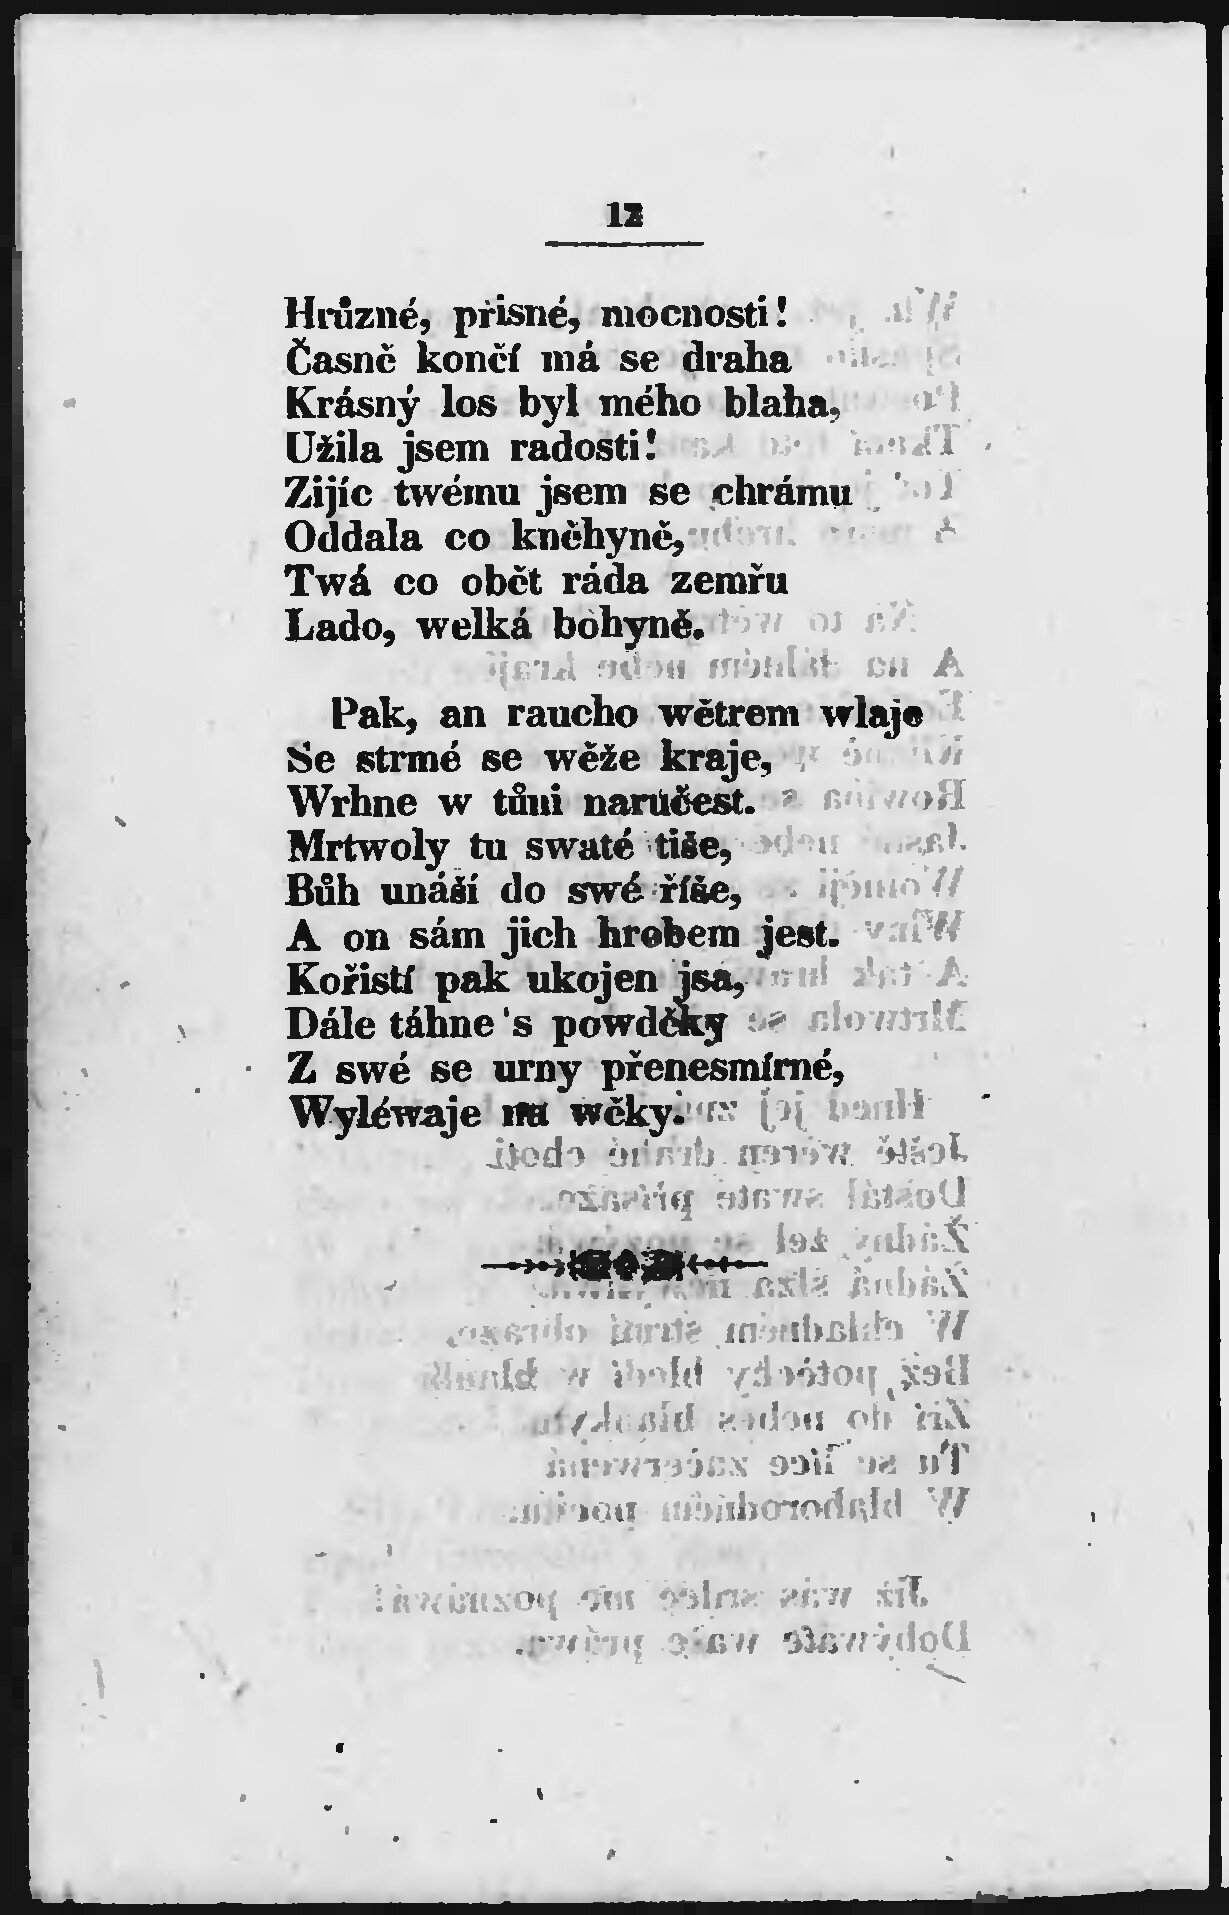 12
Hrůzné, přisné, mocnosti!
Časně končí má se draha
Krásný los byl mého blaha,
Užila jsem radosti!
Zijíc twému jsem se chrámu
Oddala co kněhyně,
Twá co obět ráda zemřu
Lado, welká bohyně.
Pak, an raucho wětrem wlaje
Se strmé se wěže kraje,
Wrhne w tůni naručest.
Mrtwoly tu swaté tiše,
Bůh unáší do swé říše,
A on sám jich hrobem jest.
Kořistí pak ukojen jsa,
Dále táhne 's powděky
Z swé se urny přenesmírné,
Wyléwaje na wěky.